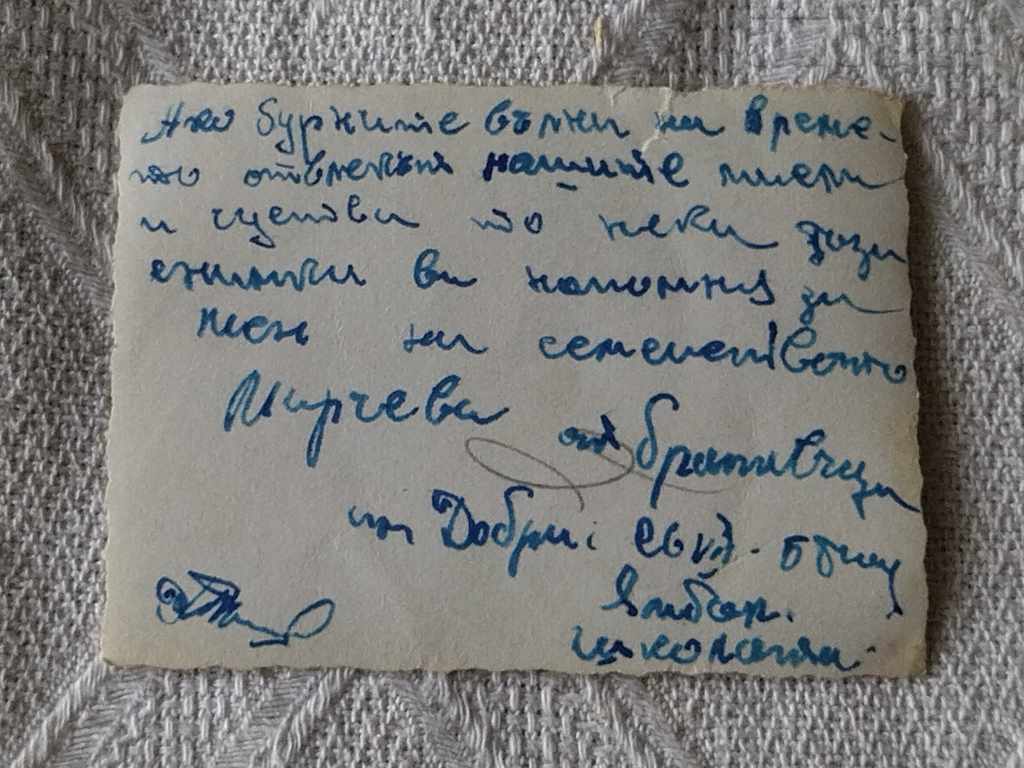 Ако бурните вълни на време-
то отвлекат нашите мисли
и чуства то нека този
снимка ви напомня за
мен на семейството
Мирчева от братовчеда
на Добри
Ямбол.
школата.